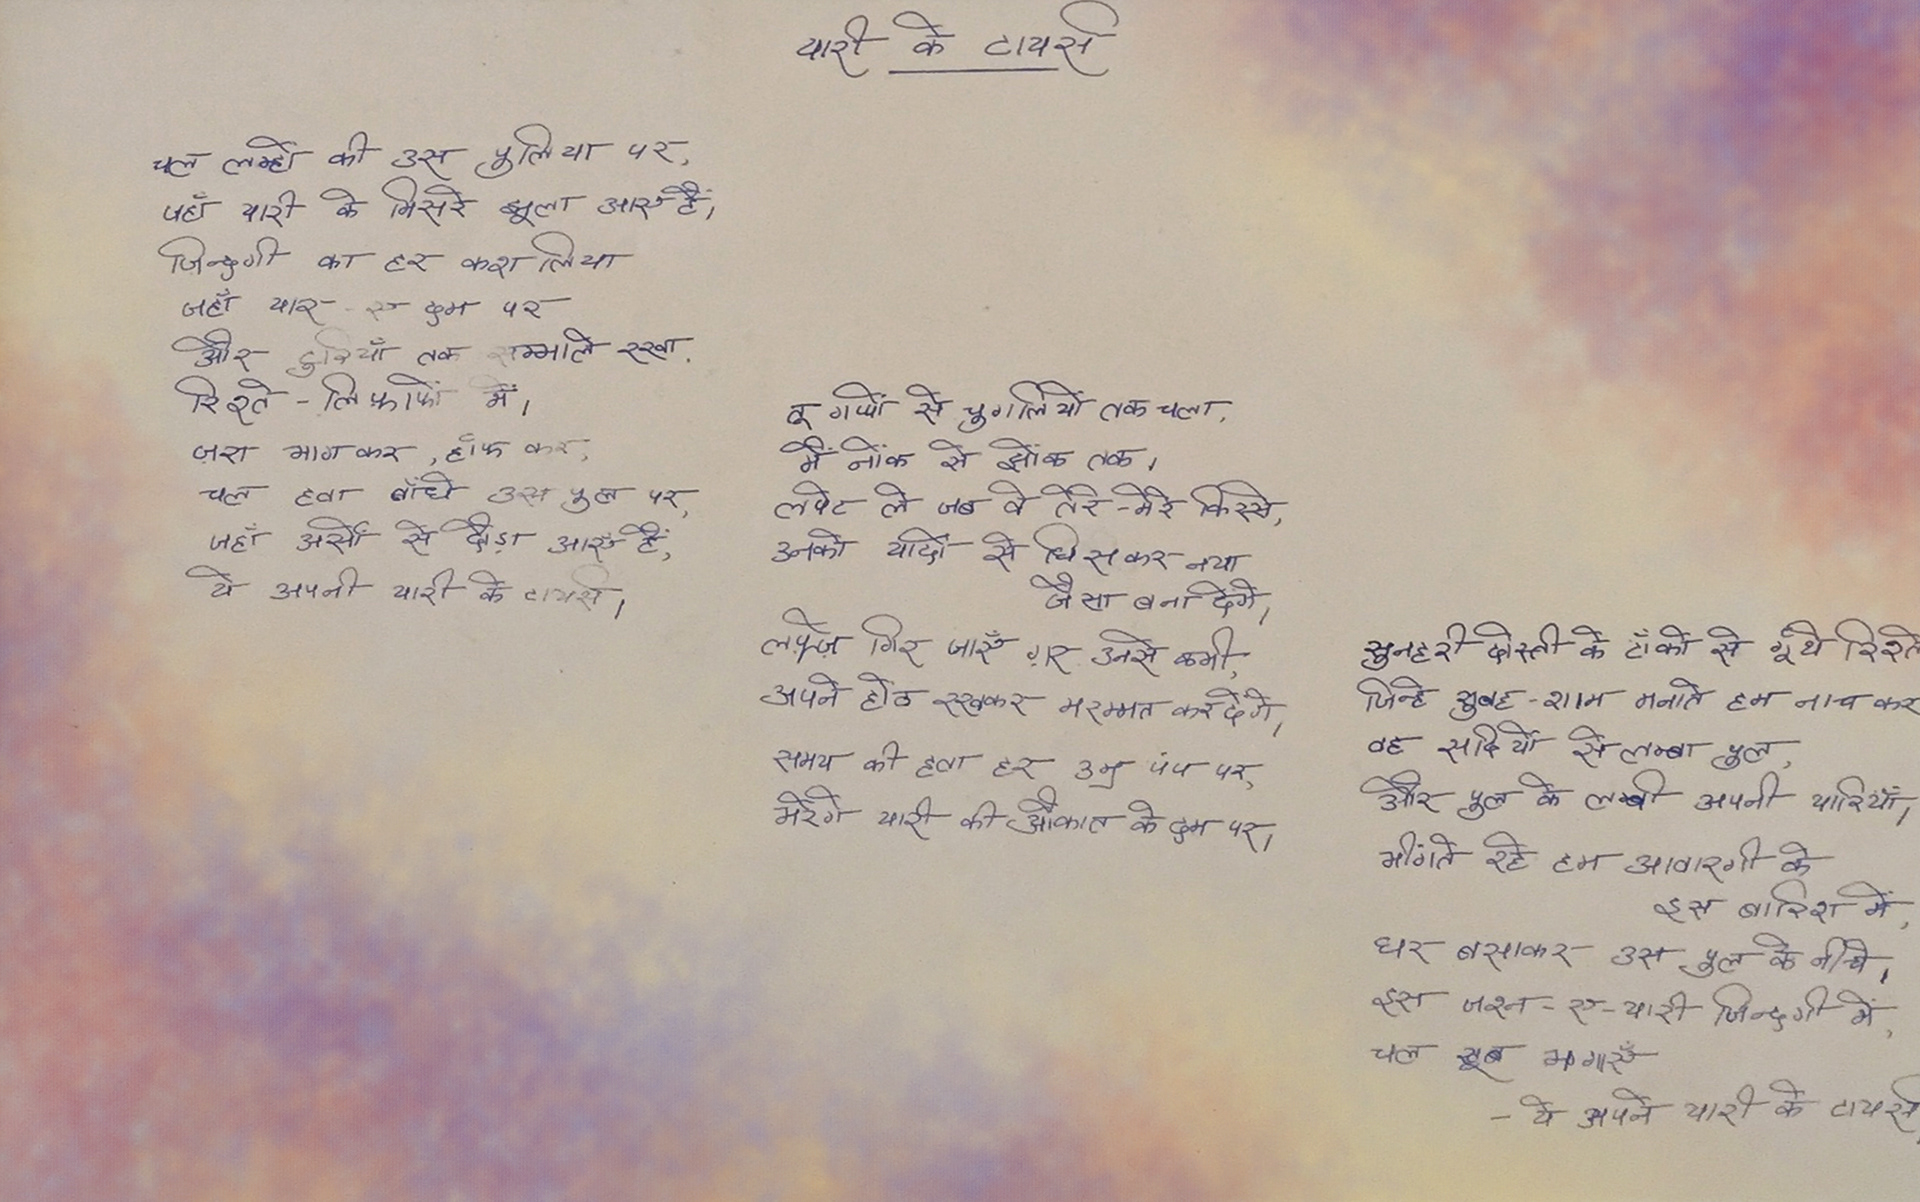 यारी के टायर्स
चल लम्हों की उस पुलिया पर,
जहाँ यारी के मिसरे झूला आएँ हैं,
ज़िन्दगी का हर कश लिया
जहाँ यार-ए दम पर
और दुरियाँ तक सम्भाले रखा.
रिश्ते - लिफ़ाफों में,
ज़रा भागकर, हाँफ कर,
चल हवा बाँधे उस पुल पर,
जहाँ अर्सो से दौड़ा आएँ हैं,
ये अपनी यारी के टायर्स,
तू गप्पों से चुगलियों तक चला,
मैं नोंक से झोंक तक,
लपेट ले जब वे तेरे-मेरे किस्से,
उनको यादों से घिसकर नया
जैसा बना देंगे,
लफ़्ज़ गिर जाएँ ग़र उनसे कभी,
अपने होंठ रखकर मरम्मत कर देंगे,
समय की हवा हर उम्र पंप पर,
भरेंगे यारी की औकात के दम पर,
सुनहरी दोस्ती के टाँको से गूंथे रिश्ते
जिन्हे सुबह-शाम मनाते हम नाच कर
वह सदियों से लम्बा पुल,
और पुल के लम्बी अपनी यारियाँ,
भींगते रहे हम आवारगी के
इस बारिश में,
घर बसाकर उस पुल के नीचे,
इस जश्न-ए-यारी ज़िन्दगी में,
चल खूब भगाएँ
- ये अपने यारी के टायर्स,